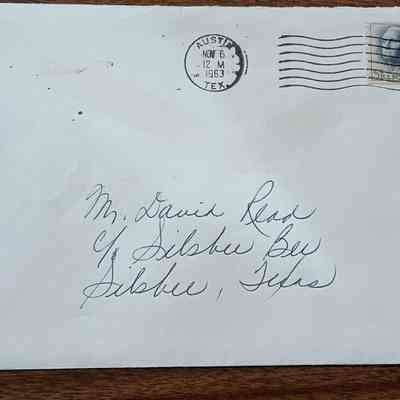 AUSTIN
NOV 6
12 M
1963
TEX.
Mr. David Read
c/o Silsbee Bee
Silsbee, Texas